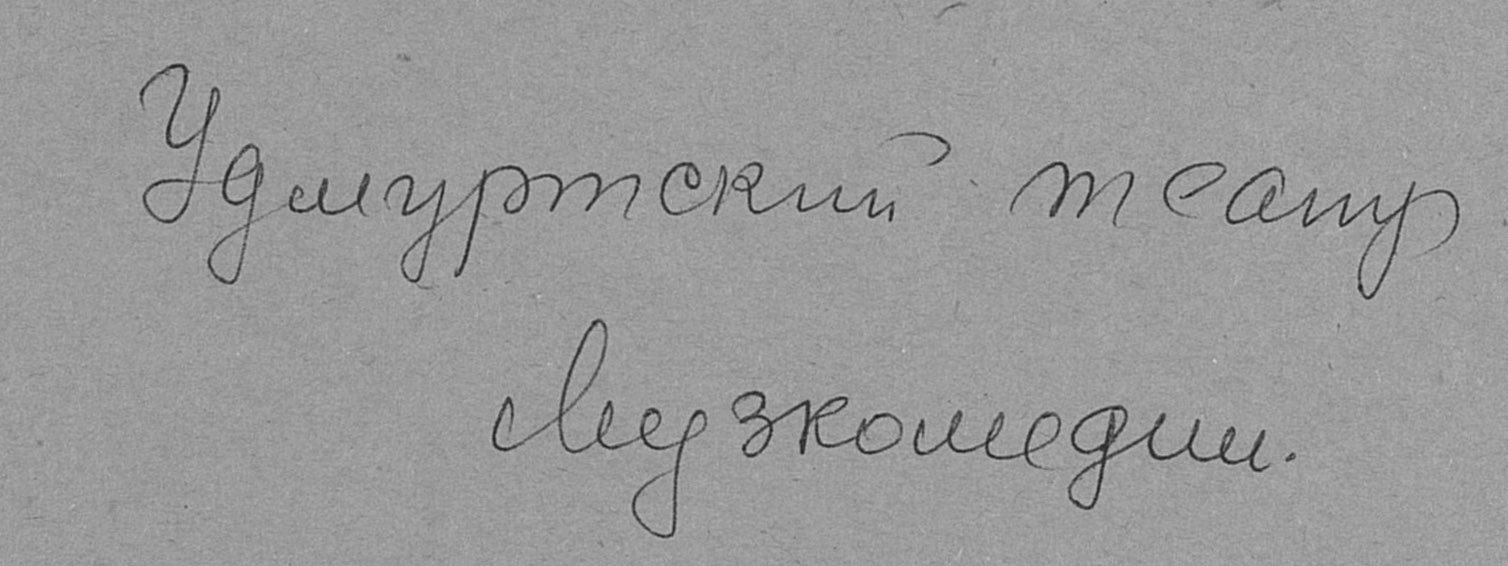 Удмуртский театр
Музкомедии.